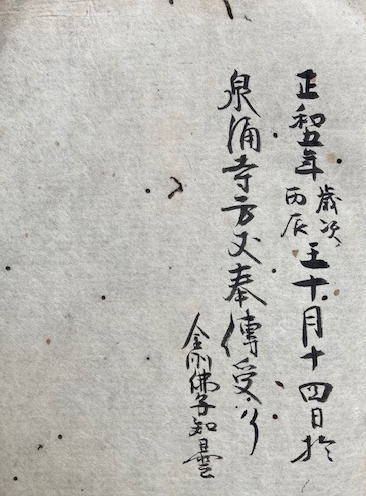 正和五年歳次丙辰壬十月十四日於
泉涌寺方丈奉傳受了
金剛佛子知曇